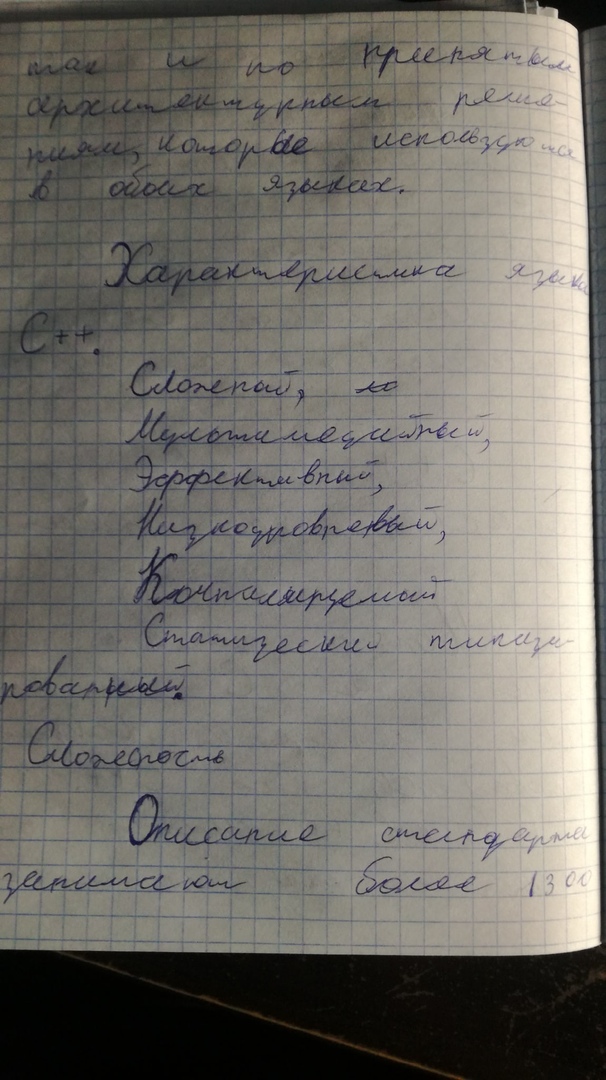 так и по принятым
архитектурным реше-
ниям, которые используются
в обоих языках.
Характеристика языка
С++.
Сложный,
Мультимедийный,
Эффективный,
Низкоуровневый,
Компилируемый
Статически типизи-
рованный.
Сложность
Описание стандарта
занимают более 1300